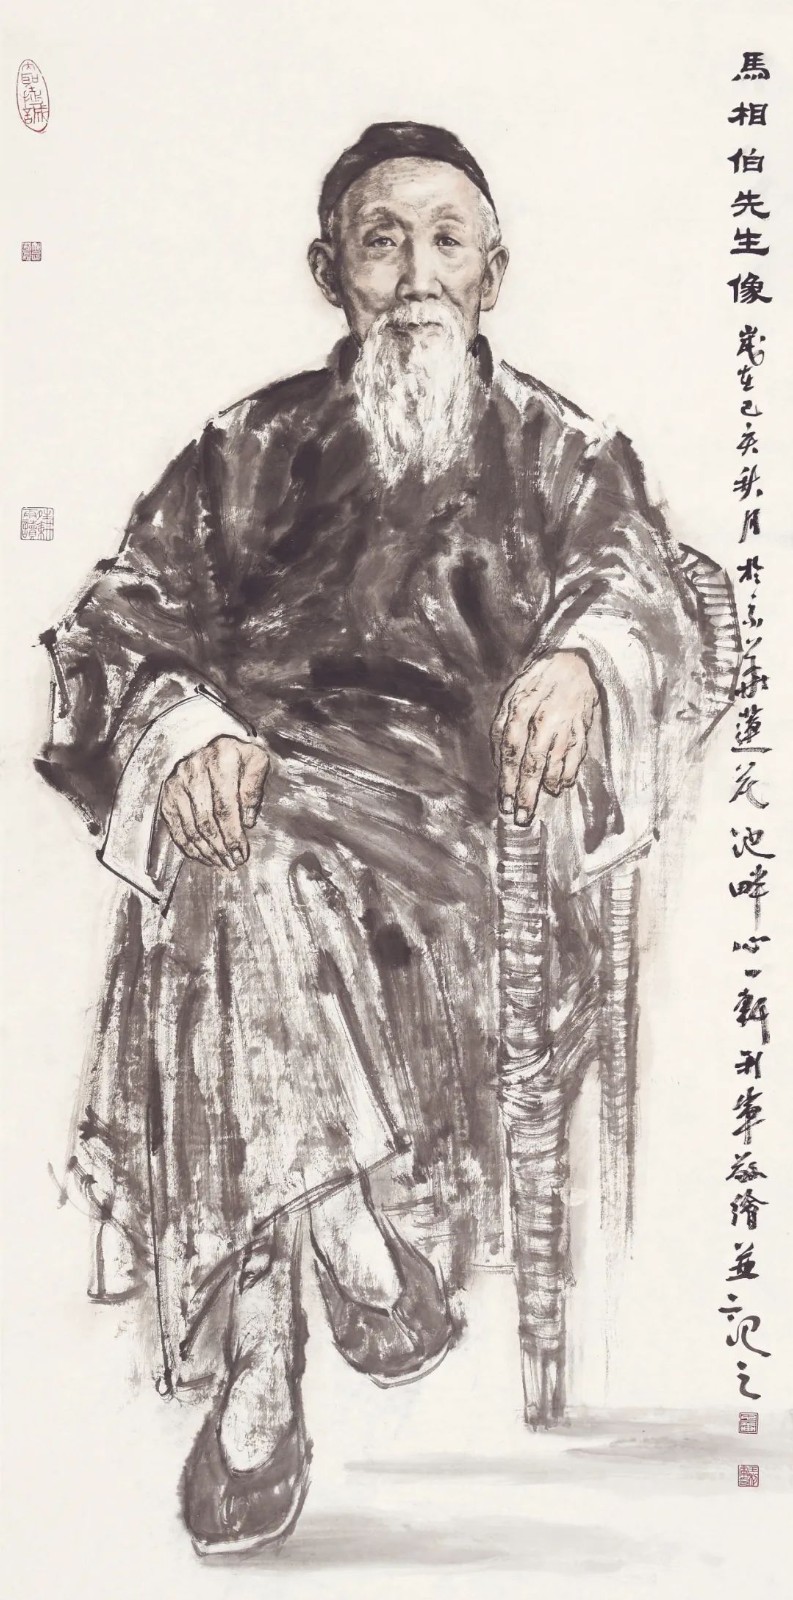 馬相伯先生像 歲在己亥秋月於京華蓮花池畔心一軒刑軍敬繪並記之